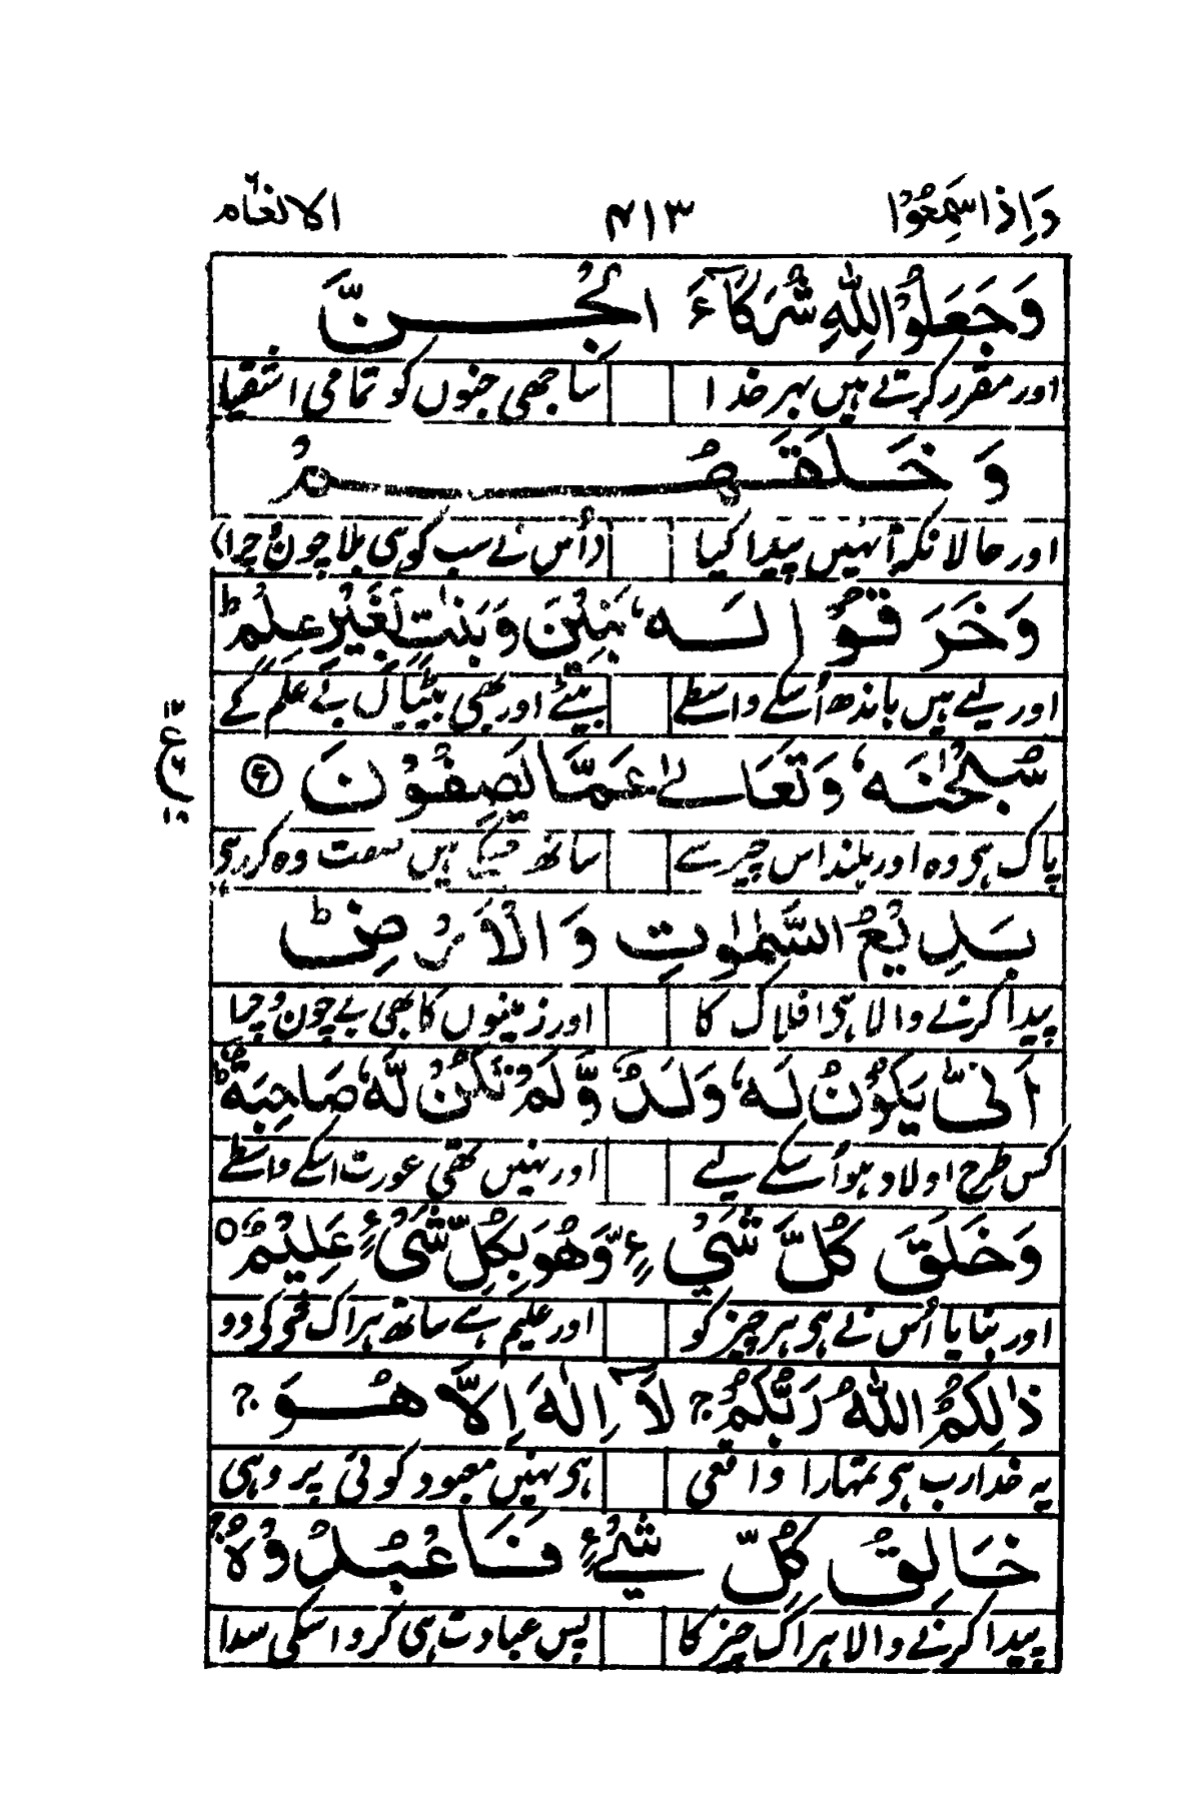 وَاِذَا سَمِعُوْا ۴۱۳ الانعام ٦
وَجَعَلُوْا لِلّٰهِ شُرَكَآءَ الْجِنَّ
اور مقرر کرتے ہیں بہر خدا ساجھی جنوں کو تمامی اشقیا
وَ خَلَقَهُمْ
اور حالانکہ اُنہیں پیدا کیا (اُس نے سب کو ہی بلا چون و چرا)
وَخَرَقُوْا لَهٗ بَنِيْنَ وَبَنٰتٍۭ بِغَيْرِ عِلْمٍ ؕ
اور لیے ہیں باندھ اُسکے واسطے بیٹے اور بھی بیٹیاں بے علم کے
سُبْحٰنَهٗ وَتَعَالٰى عَمَّا يَصِفُوْنَ
پاک ہی وہ اور بلند اس چیز سے ساتھ جسکے ہیں صفت وہ کر رہے
بَدِيْعُ السَّمٰوٰتِ وَالْاَرْضِ ؕ
پیدا کرنے والا ہی افلاک کا اور زمینوں کا بھی بے چون و چرا
اَنّٰى يَكُوْنُ لَهٗ وَلَدٌ وَّلَمْ تَكُنْ لَّهٗ صَاحِبَةٌ ؕ
کس طرح اولاد ہو اُسکے لیے اور نہیں تھی عورت اسکے واسطے
وَخَلَقَ كُلَّ شَيْءٍ ۚ وَّهُوَ بِكُلِّ شَيْءٍ عَلِيْمٌ ○
اور بنایا اُس نے ہی ہر چیز کو اور علیم ہے ساتھ ہر اک کے وو
ذٰلِكُمُ اللّٰهُ رَبُّكُمْ ۚ لَآ اِلٰهَ اِلَّا هُوَ ۚ
یہ خدا رب ہی تمہارا واقعی ہی نہیں معبود کوئی پر وہی
خَالِقُ كُلِّ شَيْءٍ فَاعْبُدُوْهُ ۚ
پیدا کرنے والا ہر اک چیز کا پس عبادت ہی کرو اسکی سدا